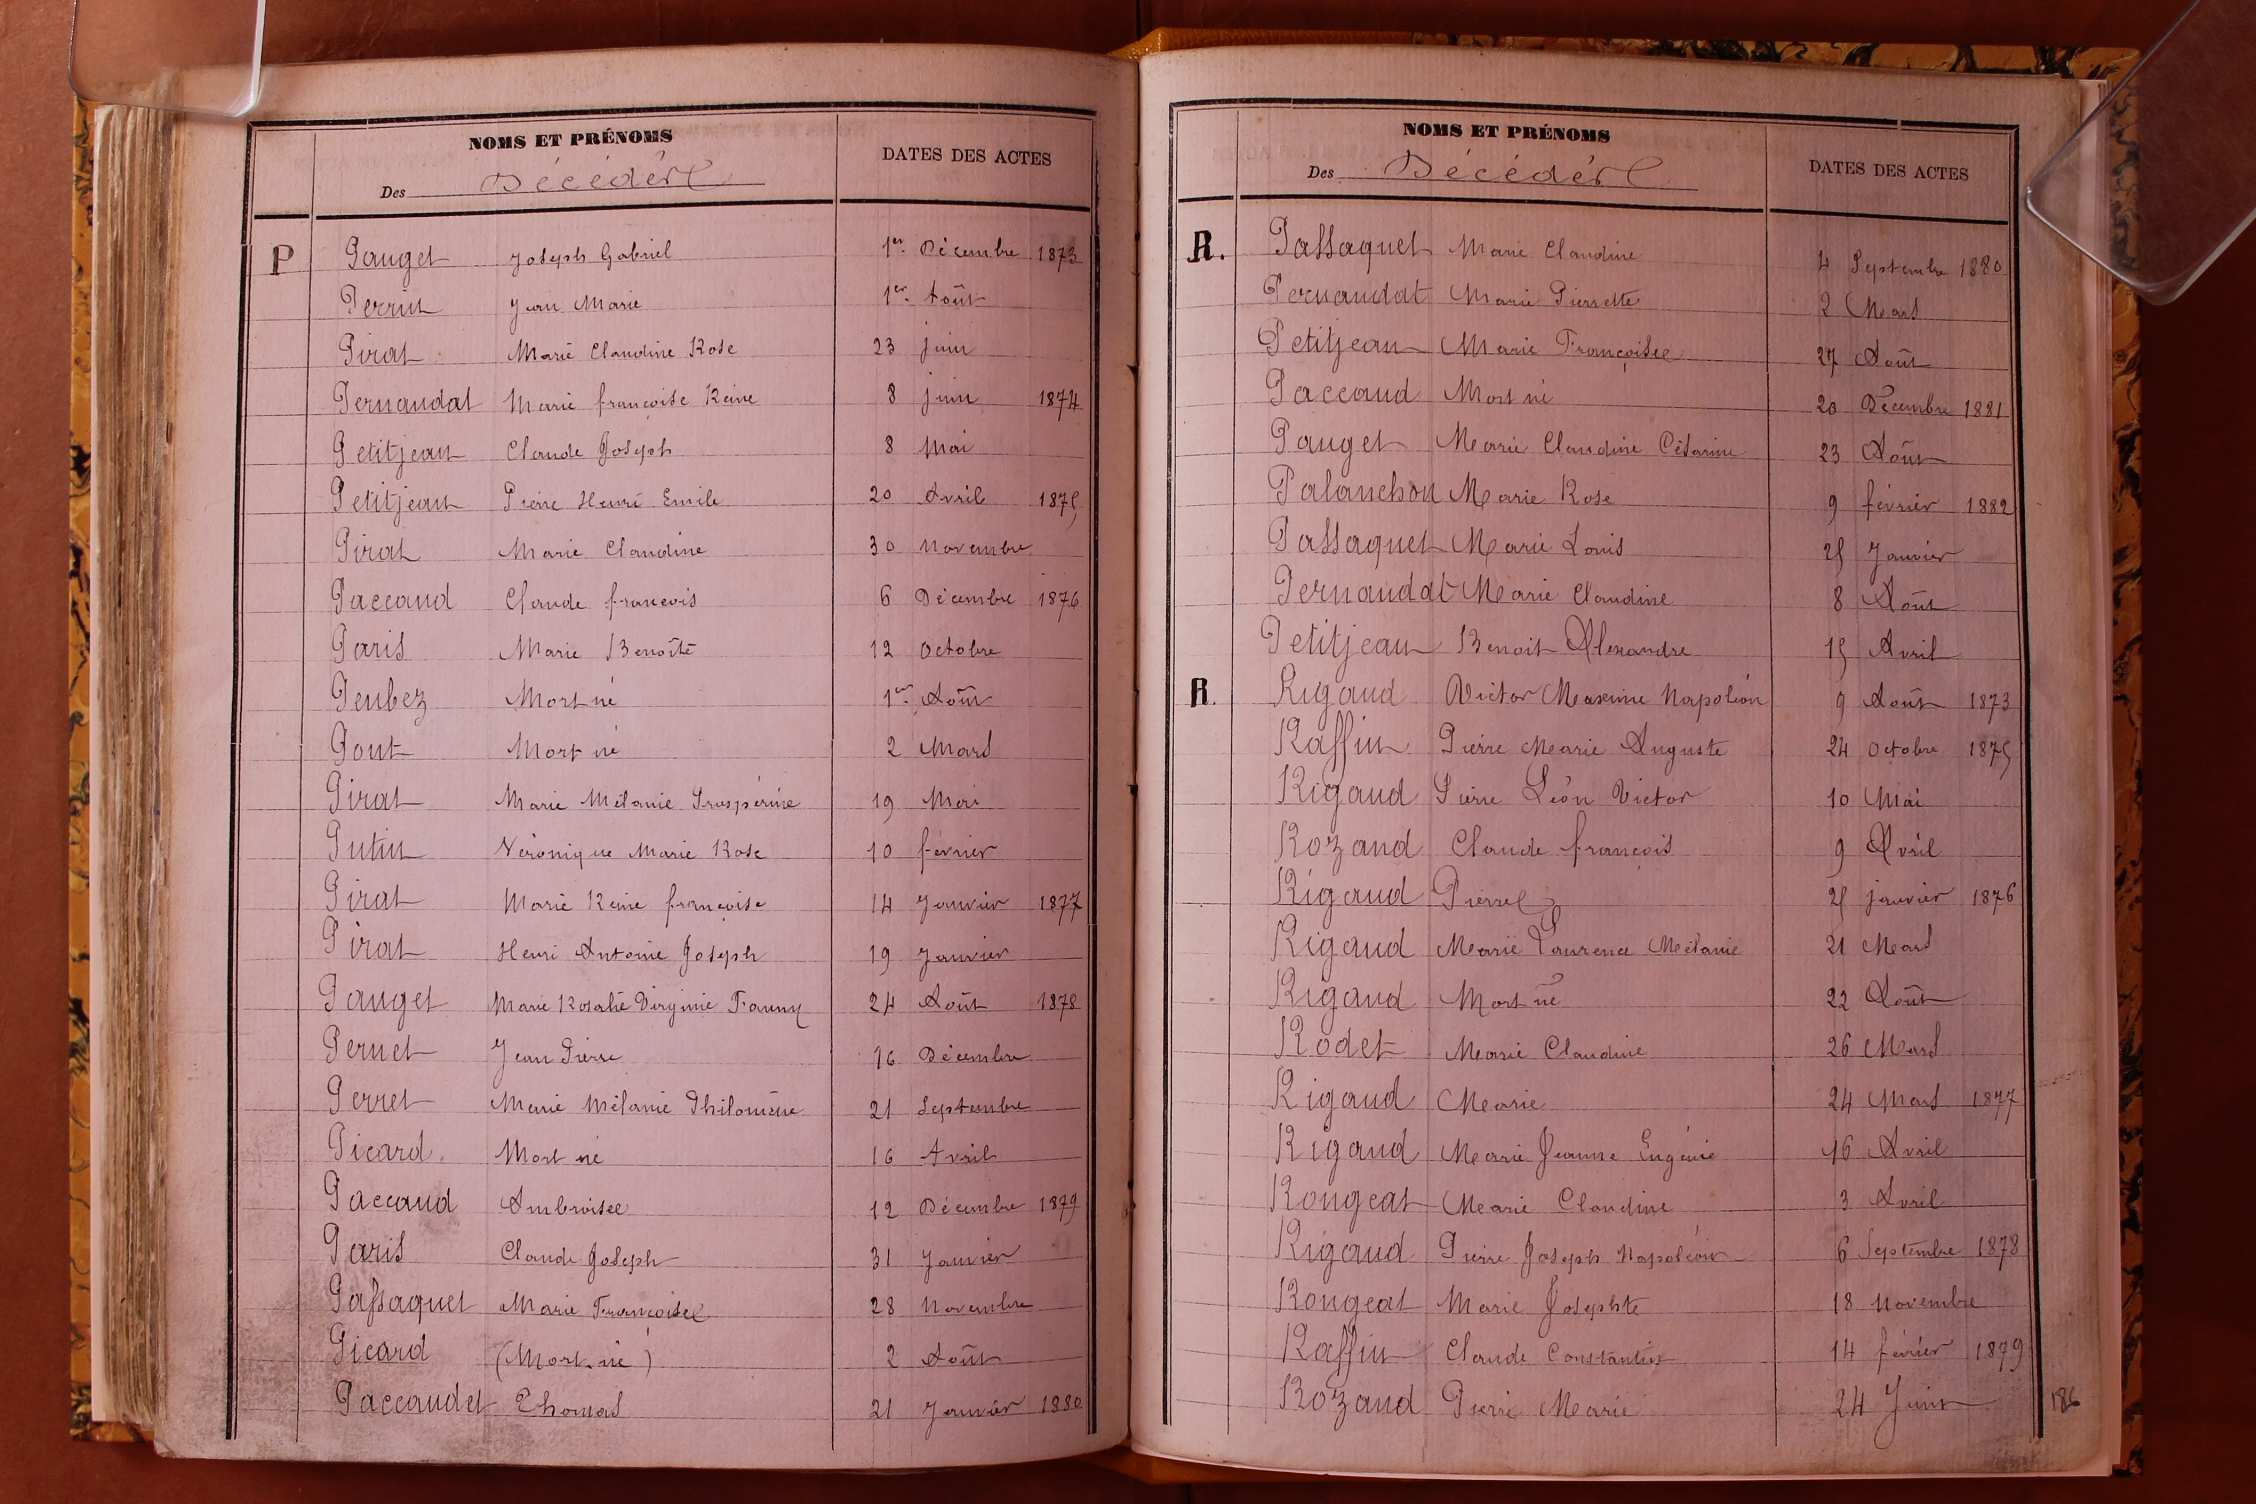 NOMS ET PRÉNOMS
DATES DES ACTES
Des Décédés
P Pauget Joseph Gabriel 1er Décembre 1873
Perrin Jean Marie 1er Août
Pirat Marie Claudine Rose 23 juin
Pernaudat Marie françoise Reine 8 juin 1874
Petitjean Claude Joseph 8 Mai
Petitjean Pierre Henri Emile 20 Avril 1875
Pirat Marie Claudine 30 Novembre
Paccaud Claude françois 6 Décembre 1876
Paris Marie Benoîte 12 Octobre
Peubez Mort né 1er Août
Pont Mort né 2 Mars
Pirat Marie Mélanie Prospérine 19 Mai
Putin Véronique Marie Rose 10 février
Pirat Marie Reine françoise 14 Janvier 1877
Pirat Henri Antoine Joseph 19 Janvier
Pauget Marie Rosalie Virginie Fanny 24 Août 1878
Pernet Jean Pierre 16 Décembre
Perret Marie Mélanie Philomène 21 Septembre
Picard Mort né 16 Avril
Paccaud Ambroise 12 Décembre 1879
Paris Claude Joseph 31 Janvier
Passaquet Marie Françoise 28 Novembre
Picard (Mort-né) 2 Août
Paccaudet Thomas 21 Janvier 1880
NOMS ET PRÉNOMS
DATES DES ACTES
Des Décédés
R. Passaquet Marie Claudine 4 Septembre 1880
Pernaudat Marie Pierrette 2 Mars
Petitjean Marie Françoise 27 Août
Paccaud Mort né 20 Décembre 1881
Pauget Marie Claudine Césarine 23 Août
Palanchon Marie Rose 9 février 1882
Passaquet Marie Louis 25 Janvier
Pernaudat Marie Claudine 8 Août
Petitjean Benoit Alexandre 15 Avril
R. Rigaud Victor Maxime Napoléon 9 Août 1873
Raffin Pierre Marie Auguste 24 Octobre 1875
Rigaud Pierre Léon Victor 10 Mai
Rozand Claude françois 9 Avril
Rigaud Pierre 25 janvier 1876
Rigaud Marie Laurence Mélanie 21 Mars
Rigaud Mort né 22 Août
Rodet Marie Claudine 26 Mars
Rigaud Marie 24 Mars 1877
Rigaud Marie Jeanne Eugénie 16 Avril
Rongeat Marie Claudine 3 Avril
Rigaud Pierre Joseph Napoléon 6 Septembre 1878
Rongeat Marie Josephte 18 Novembre
Raffin Claude Constantin 14 février 1879
Rozand Pierre Marie 24 Juin
186